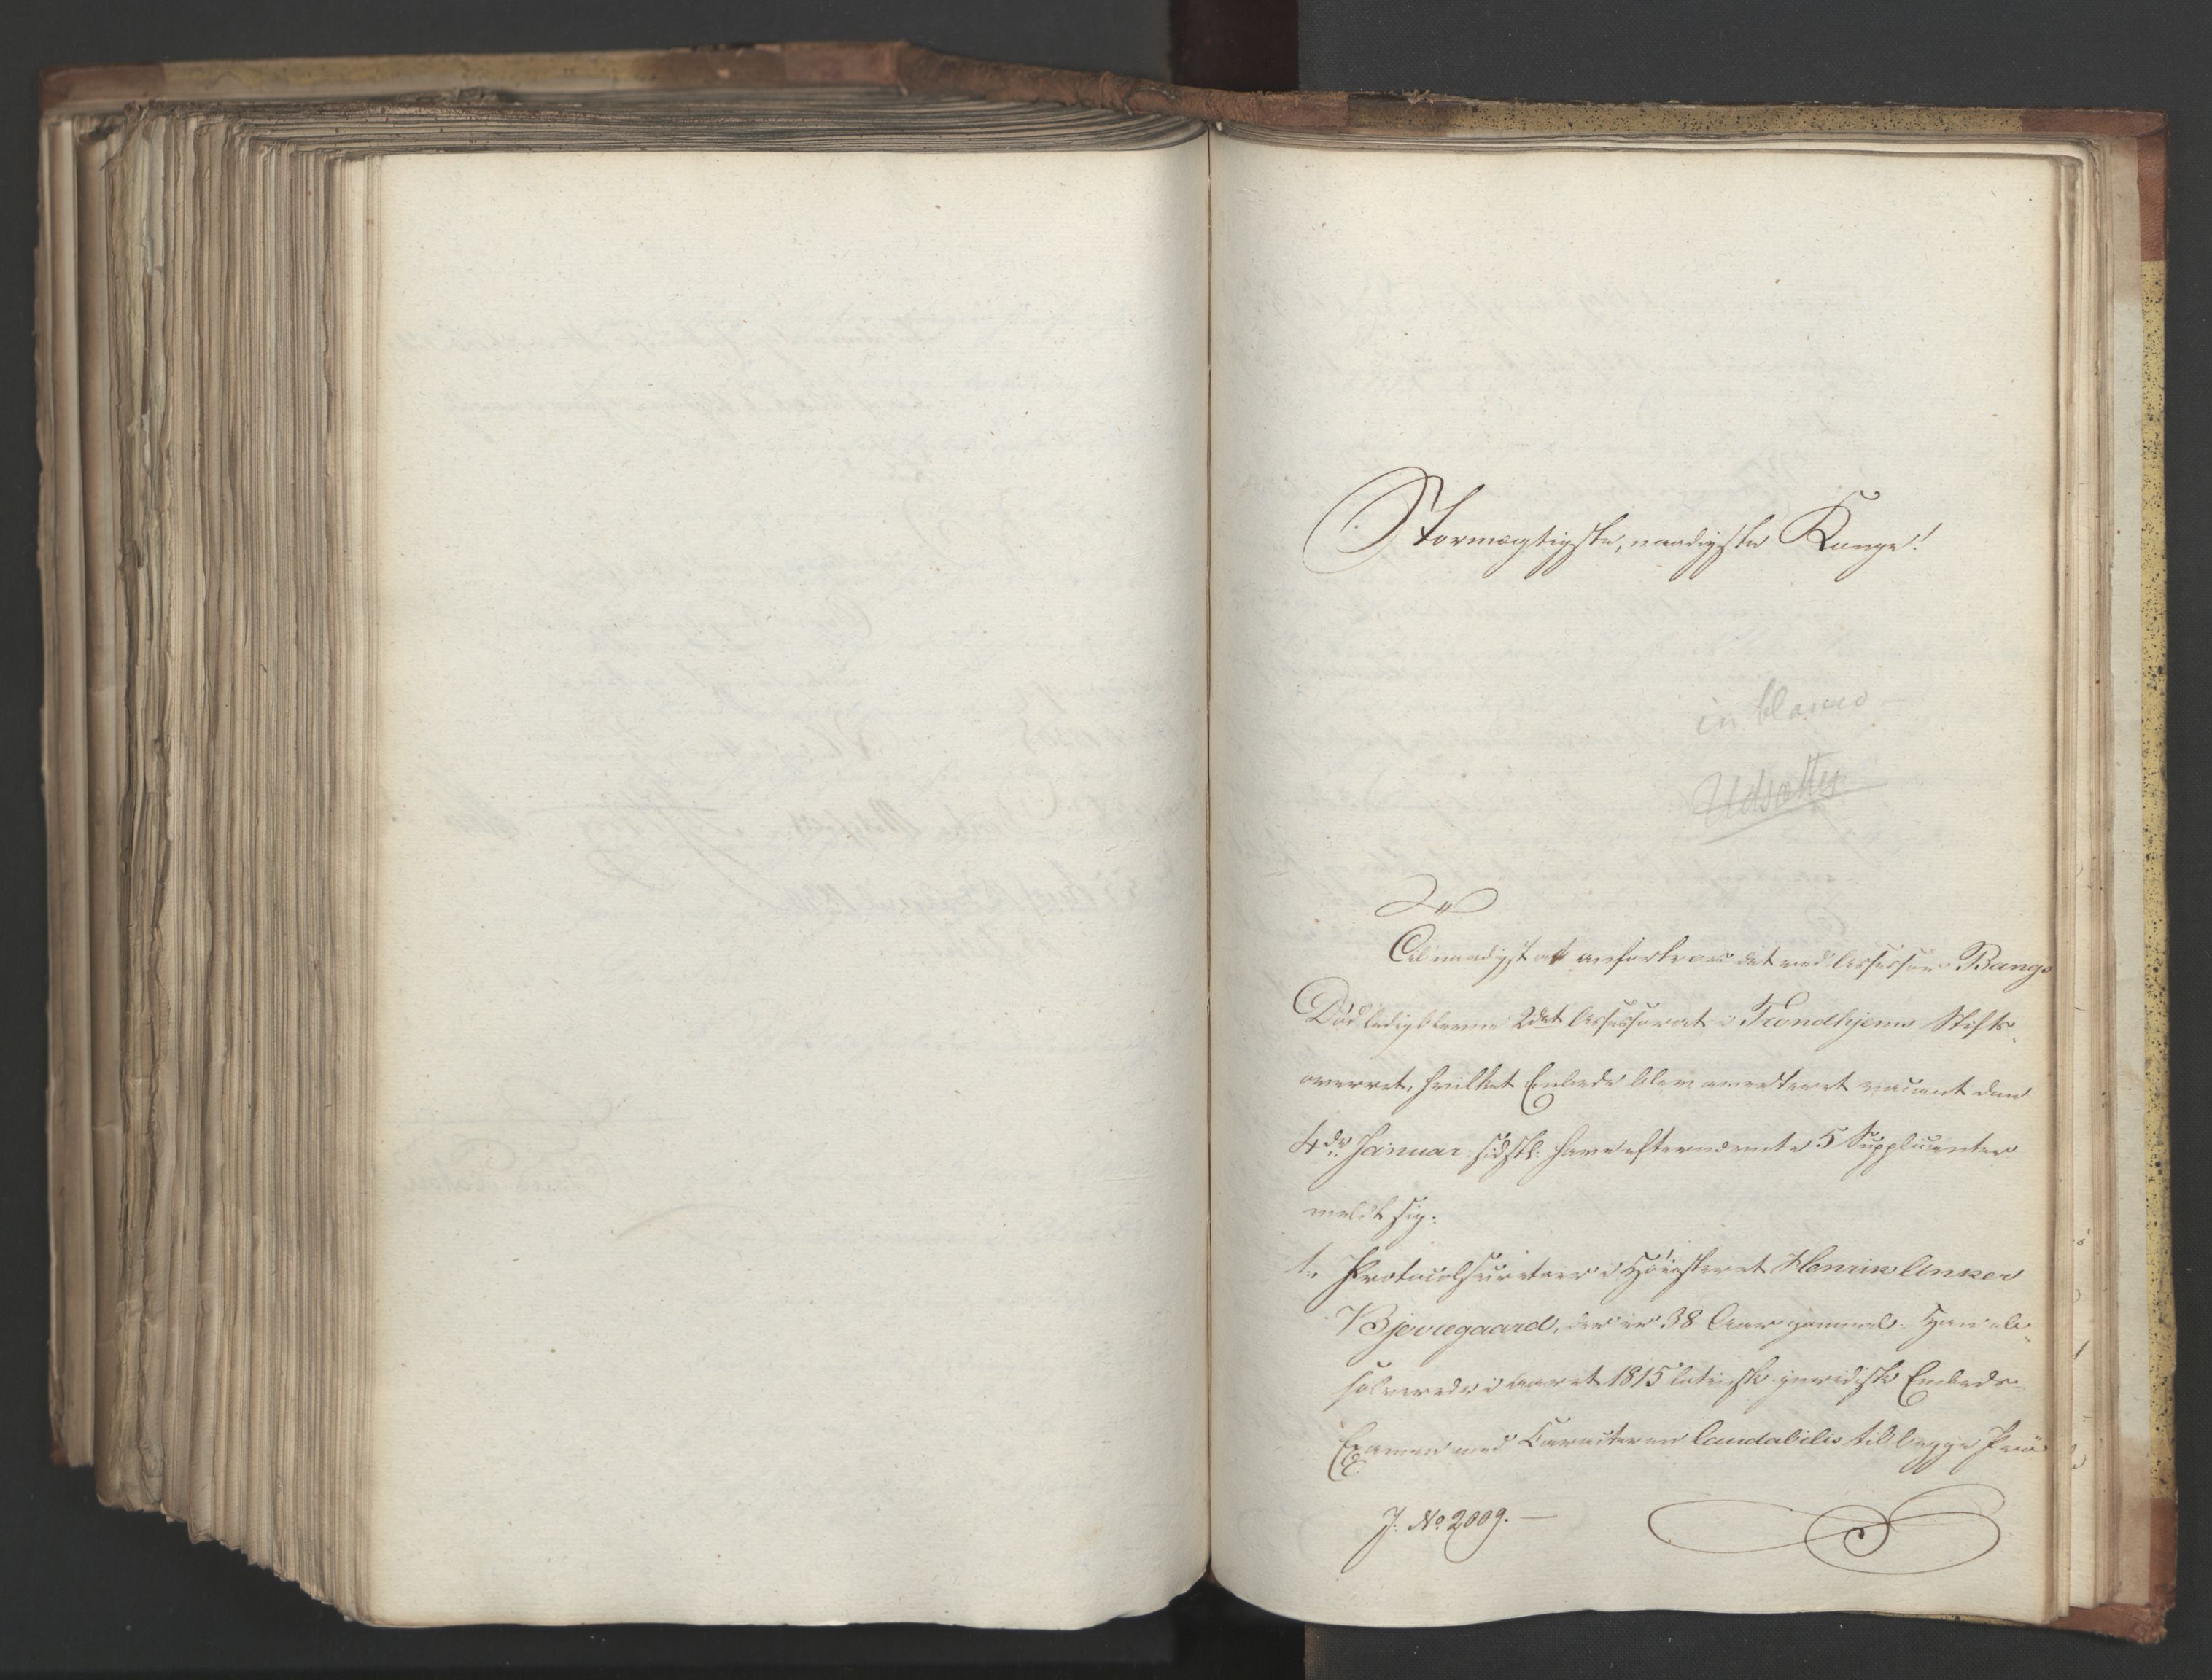 Stormægtigste, naadigste Konge!
in blanco
Udsættes
Til naadigst at anfortroes det ved Assessor Bangs
Død ledigblevne 2det Assessorat i Trondhjems Stifts-
overret, hvilket Embede blev averteret vacant den
4de Januar sidstl: have efternævnte 5 Supplicanter
meldt sig:
1., Protocolsecretair i Höiesteret Henrik Anker
Bjerregaard, der er 38 Aar gammel. Han ab-
solverede i Aaret 1815 latinsk juridisk Embeds-
Examen med Caracteren laudabilis til begge Prö-
J. No. 2009. —